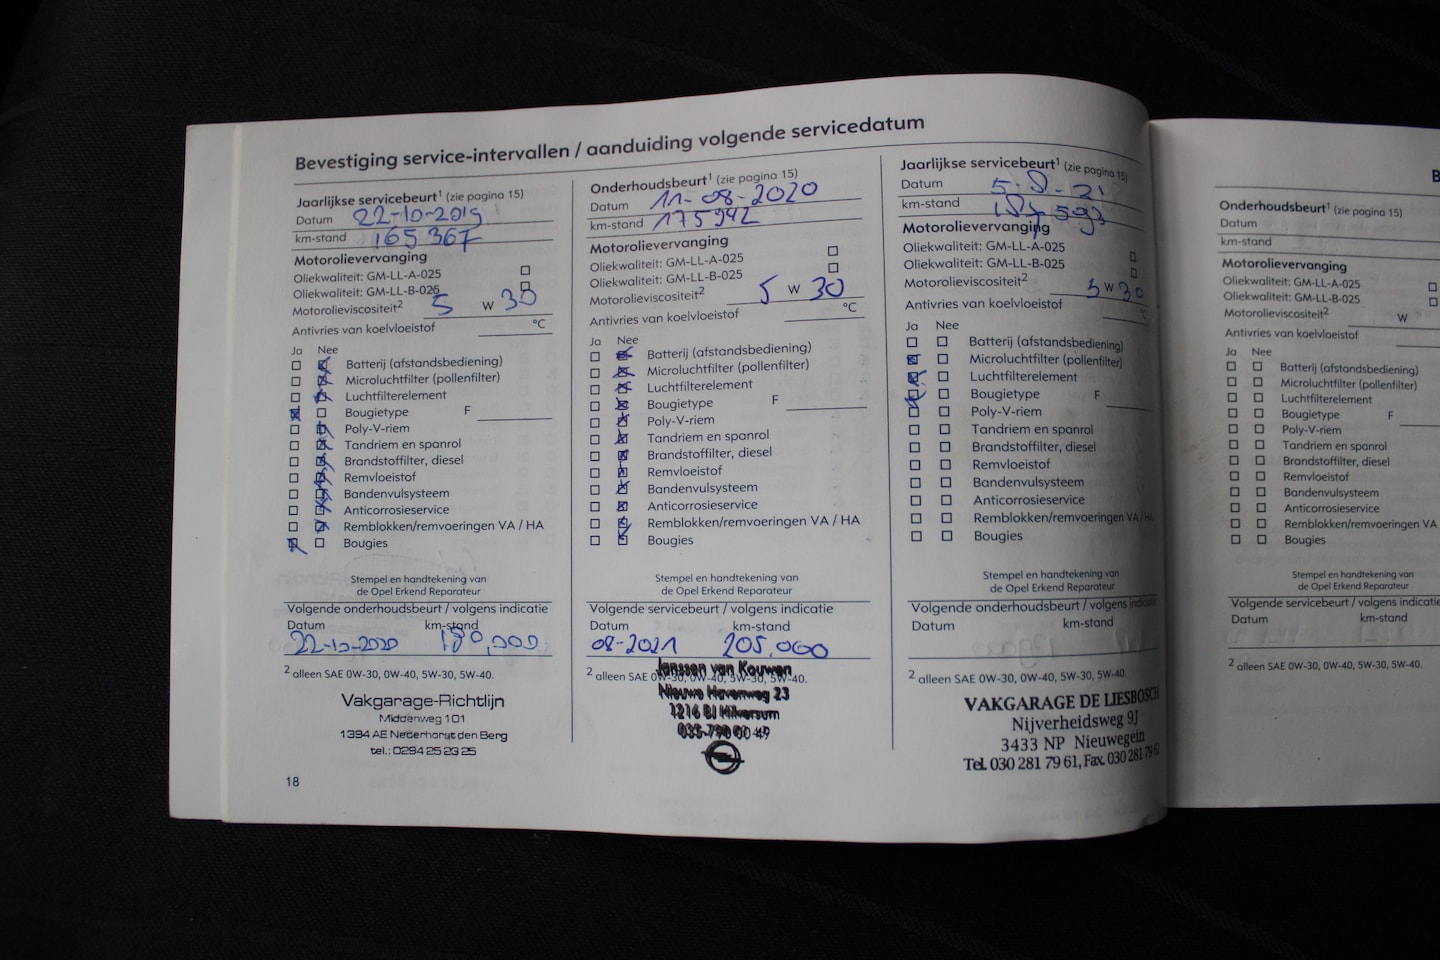 Bevestiging service-intervallen / aanduiding volgende servicedatum
Jaarlijkse servicebeurt¹ (zie pagina 15)
Datum 22-10-2019
km-stand 165 367
Motorolievervanging
Oliekwaliteit: GM-LL-A-025
Oliekwaliteit: GM-LL-B-025
Motorolieviscositeit² 5 W 30
Antivries van koelvloeistof °C
Ja Nee
Batterij (afstandsbediening)
Microluchtfilter (pollenfilter)
Luchtfilterelement
Bougietype F
Poly-V-riem
Tandriem en spanrol
Brandstoffilter, diesel
Remvloeistof
Bandenvulsysteem
Anticorrosieservice
Remblokken/remvoeringen VA / HA
Bougies
Stempel en handtekening van
de Opel Erkend Reparateur
Volgende onderhoudsbeurt / volgens indicatie
Datum km-stand
22-10-2020 180,000
² alleen SAE 0W-30, 0W-40, 5W-30, 5W-40.
Vakgarage-Richtlijn
Middenweg 101
1394 AE Nederhorst den Berg
tel.: 0294 25 23 25
18
Onderhoudsbeurt¹ (zie pagina 15)
Datum 11-08-2020
km-stand 175942
Motorolievervanging
Oliekwaliteit: GM-LL-A-025
Oliekwaliteit: GM-LL-B-025
Motorolieviscositeit² 5 W 30
Antivries van koelvloeistof °C
Ja Nee
Batterij (afstandsbediening)
Microluchtfilter (pollenfilter)
Luchtfilterelement
Bougietype F
Poly-V-riem
Tandriem en spanrol
Brandstoffilter, diesel
Remvloeistof
Bandenvulsysteem
Anticorrosieservice
Remblokken/remvoeringen VA / HA
Bougies
Stempel en handtekening van
de Opel Erkend Reparateur
Volgende servicebeurt / volgens indicatie
Datum km-stand
08-2021 205.000
² alleen SAE 0W-30, 0W-40, 5W-30, 5W-40.
Janssen van Kouwen
Nieuwe Havenweg 23
1216 BJ Hilversum
Jaarlijkse servicebeurt¹ (zie pagina 15)
Datum
km-stand
Motorolievervanging
Oliekwaliteit: GM-LL-A-025
Oliekwaliteit: GM-LL-B-025
Motorolieviscositeit² 5 W 30
Antivries van koelvloeistof °C
Ja Nee
Batterij (afstandsbediening)
Microluchtfilter (pollenfilter)
Luchtfilterelement
Bougietype F
Poly-V-riem
Tandriem en spanrol
Brandstoffilter, diesel
Remvloeistof
Bandenvulsysteem
Anticorrosieservice
Remblokken/remvoeringen VA / HA
Bougies
Stempel en handtekening van
de Opel Erkend Reparateur
Volgende onderhoudsbeurt / volgens indicatie
Datum km-stand
² alleen SAE 0W-30, 0W-40, 5W-30, 5W-40.
VAKGARAGE DE LIESBOSCH
Nijverheidsweg 9J
3433 NP Nieuwegein
Tel. 030 281 79 61, Fax. 030 281 79 62
B
Onderhoudsbeurt¹ (zie pagina 15)
Datum
km-stand
Motorolievervanging
Oliekwaliteit: GM-LL-A-025
Oliekwaliteit: GM-LL-B-025
Motorolieviscositeit² W
Antivries van koelvloeistof
Ja Nee
Batterij (afstandsbediening)
Microluchtfilter (pollenfilter)
Luchtfilterelement
Bougietype F
Poly-V-riem
Tandriem en spanrol
Brandstoffilter, diesel
Remvloeistof
Bandenvulsysteem
Anticorrosieservice
Remblokken/remvoeringen VA
Bougies
Stempel en handtekening van
de Opel Erkend Reparateur
Volgende servicebeurt / volgens indicatie
Datum km-stand
² alleen SAE 0W-30, 0W-40, 5W-30, 5W-40.